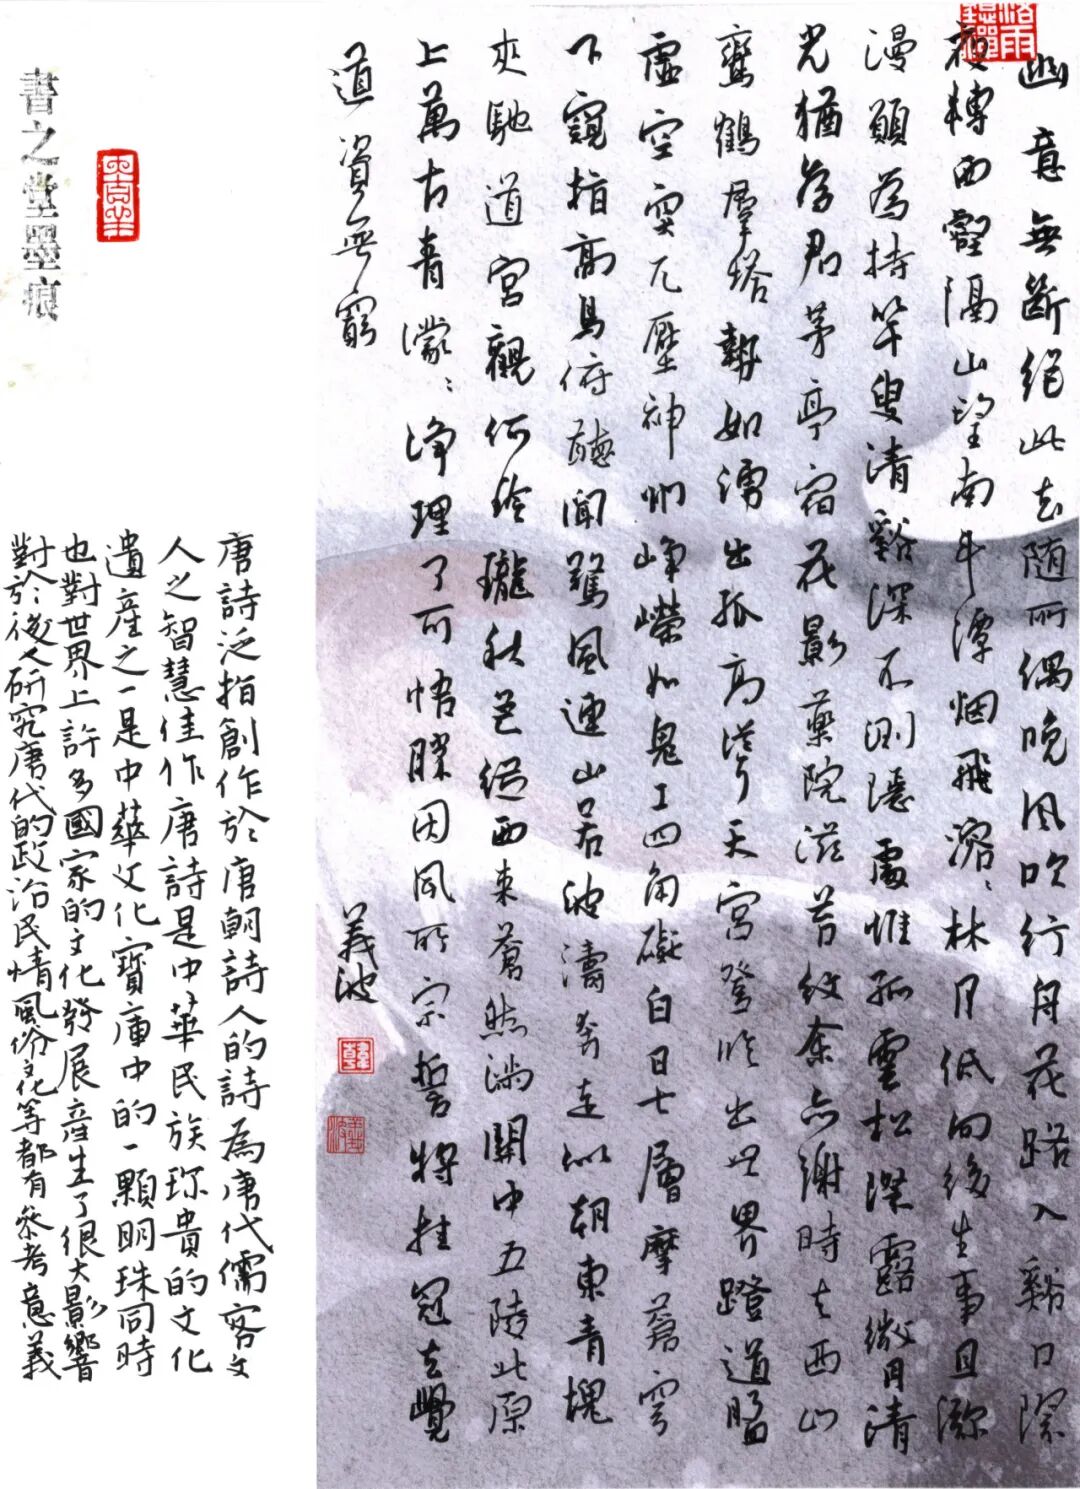 幽意無斷絕此去隨所偶晚風吹行舟花路入谿口際
夜轉西壑隔山望南斗潭烟飛溶溶林月低向後生事且瀰
漫願為持竿叟清谿深不測隱處惟孤雲松際露微月清
光猶為君茅亭宿花影藥院滋苔紋余亦謝時去西山
鸞鶴羣塔勢如湧出孤高聳天宮登臨出世界蹬道盤
虛空突兀壓神州崢嶸如鬼工四角礙白日七層摩蒼穹
下窺指高鳥俯聽聞驚風連山若波濤奔走似朝東青槐
夾馳道宮觀何玲瓏秋色從西來蒼然滿關中五陵北原
上萬古青濛濛淨理了可悟勝因夙所宗誓將挂冠去覺
道資無窮
義波
韓
義波
書之堂墨痕
唐詩泛指創作於唐朝詩人的詩為唐代儒客文
人之智慧佳作唐詩是中華民族珍貴的文化
遺産之一是中華文化寶庫中的一顆明珠同時
也對世界上許多國家的文化發展産生了很大影響
對於後人研究唐代的政治民情風俗文化等都有參考意義